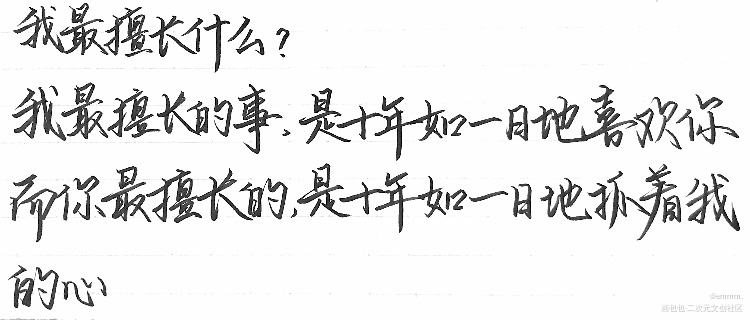 我最擅长什么?
我最擅长的事,是十年如一日地喜欢你
而你最擅长的,是十年如一日地抓着我
的心
@emmm.
画包包·二次元文创社区